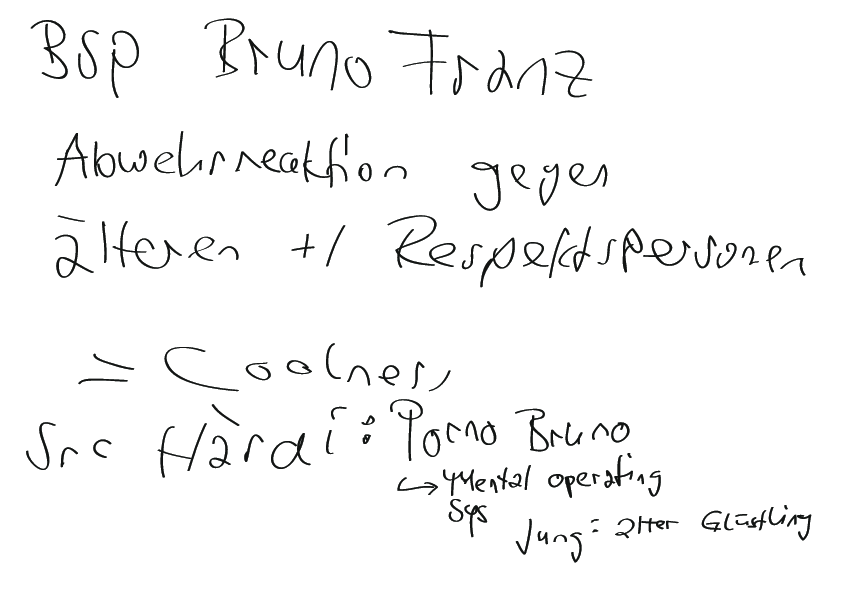 Bsp Bruno Franz
Abwehrreaktion gegen
älteren +/ Respektspersonen
= Coolness
Src Hàrdi: Porno Bruno
↳ Mental operating
Sys
Jung: älter Glüstling